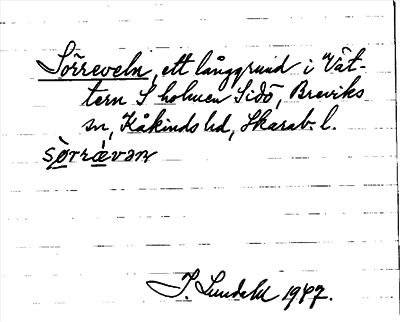 Sörreveln, ett långgrund i Vät-
tern S holmen Sidö, Breviks
sn, Kåkinds hd, Skarab. l.
sörrävan
I. Lundahl 1947.